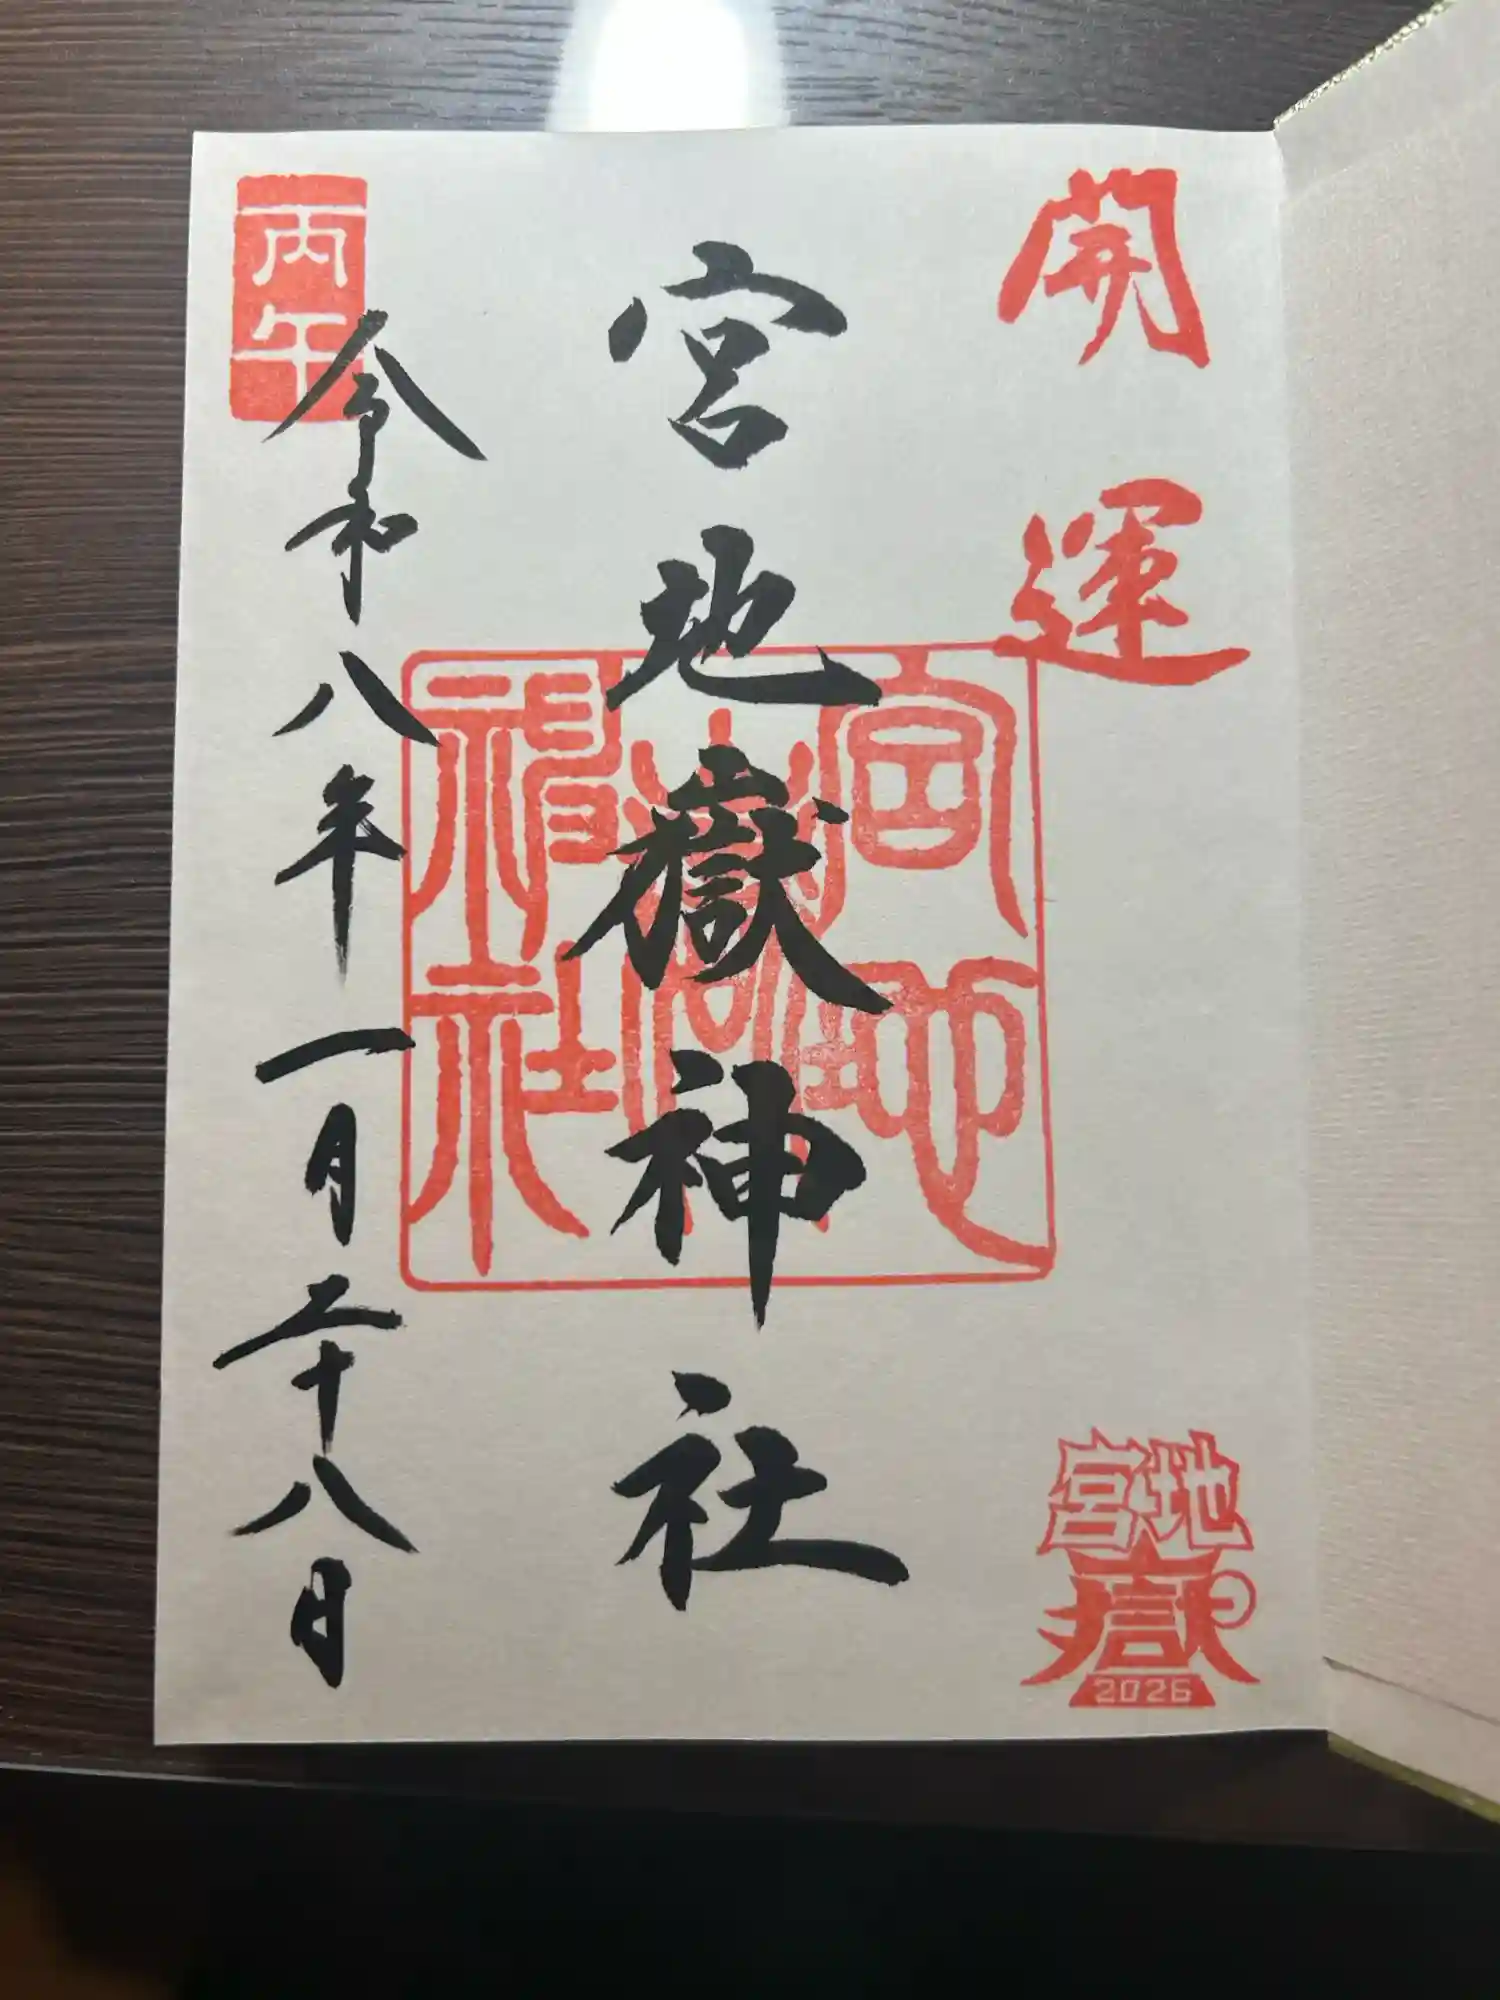 開運
宮地嶽神社
宮地嶽神社
宮地
嶽
2026
丙午
令和八年一月二十八日